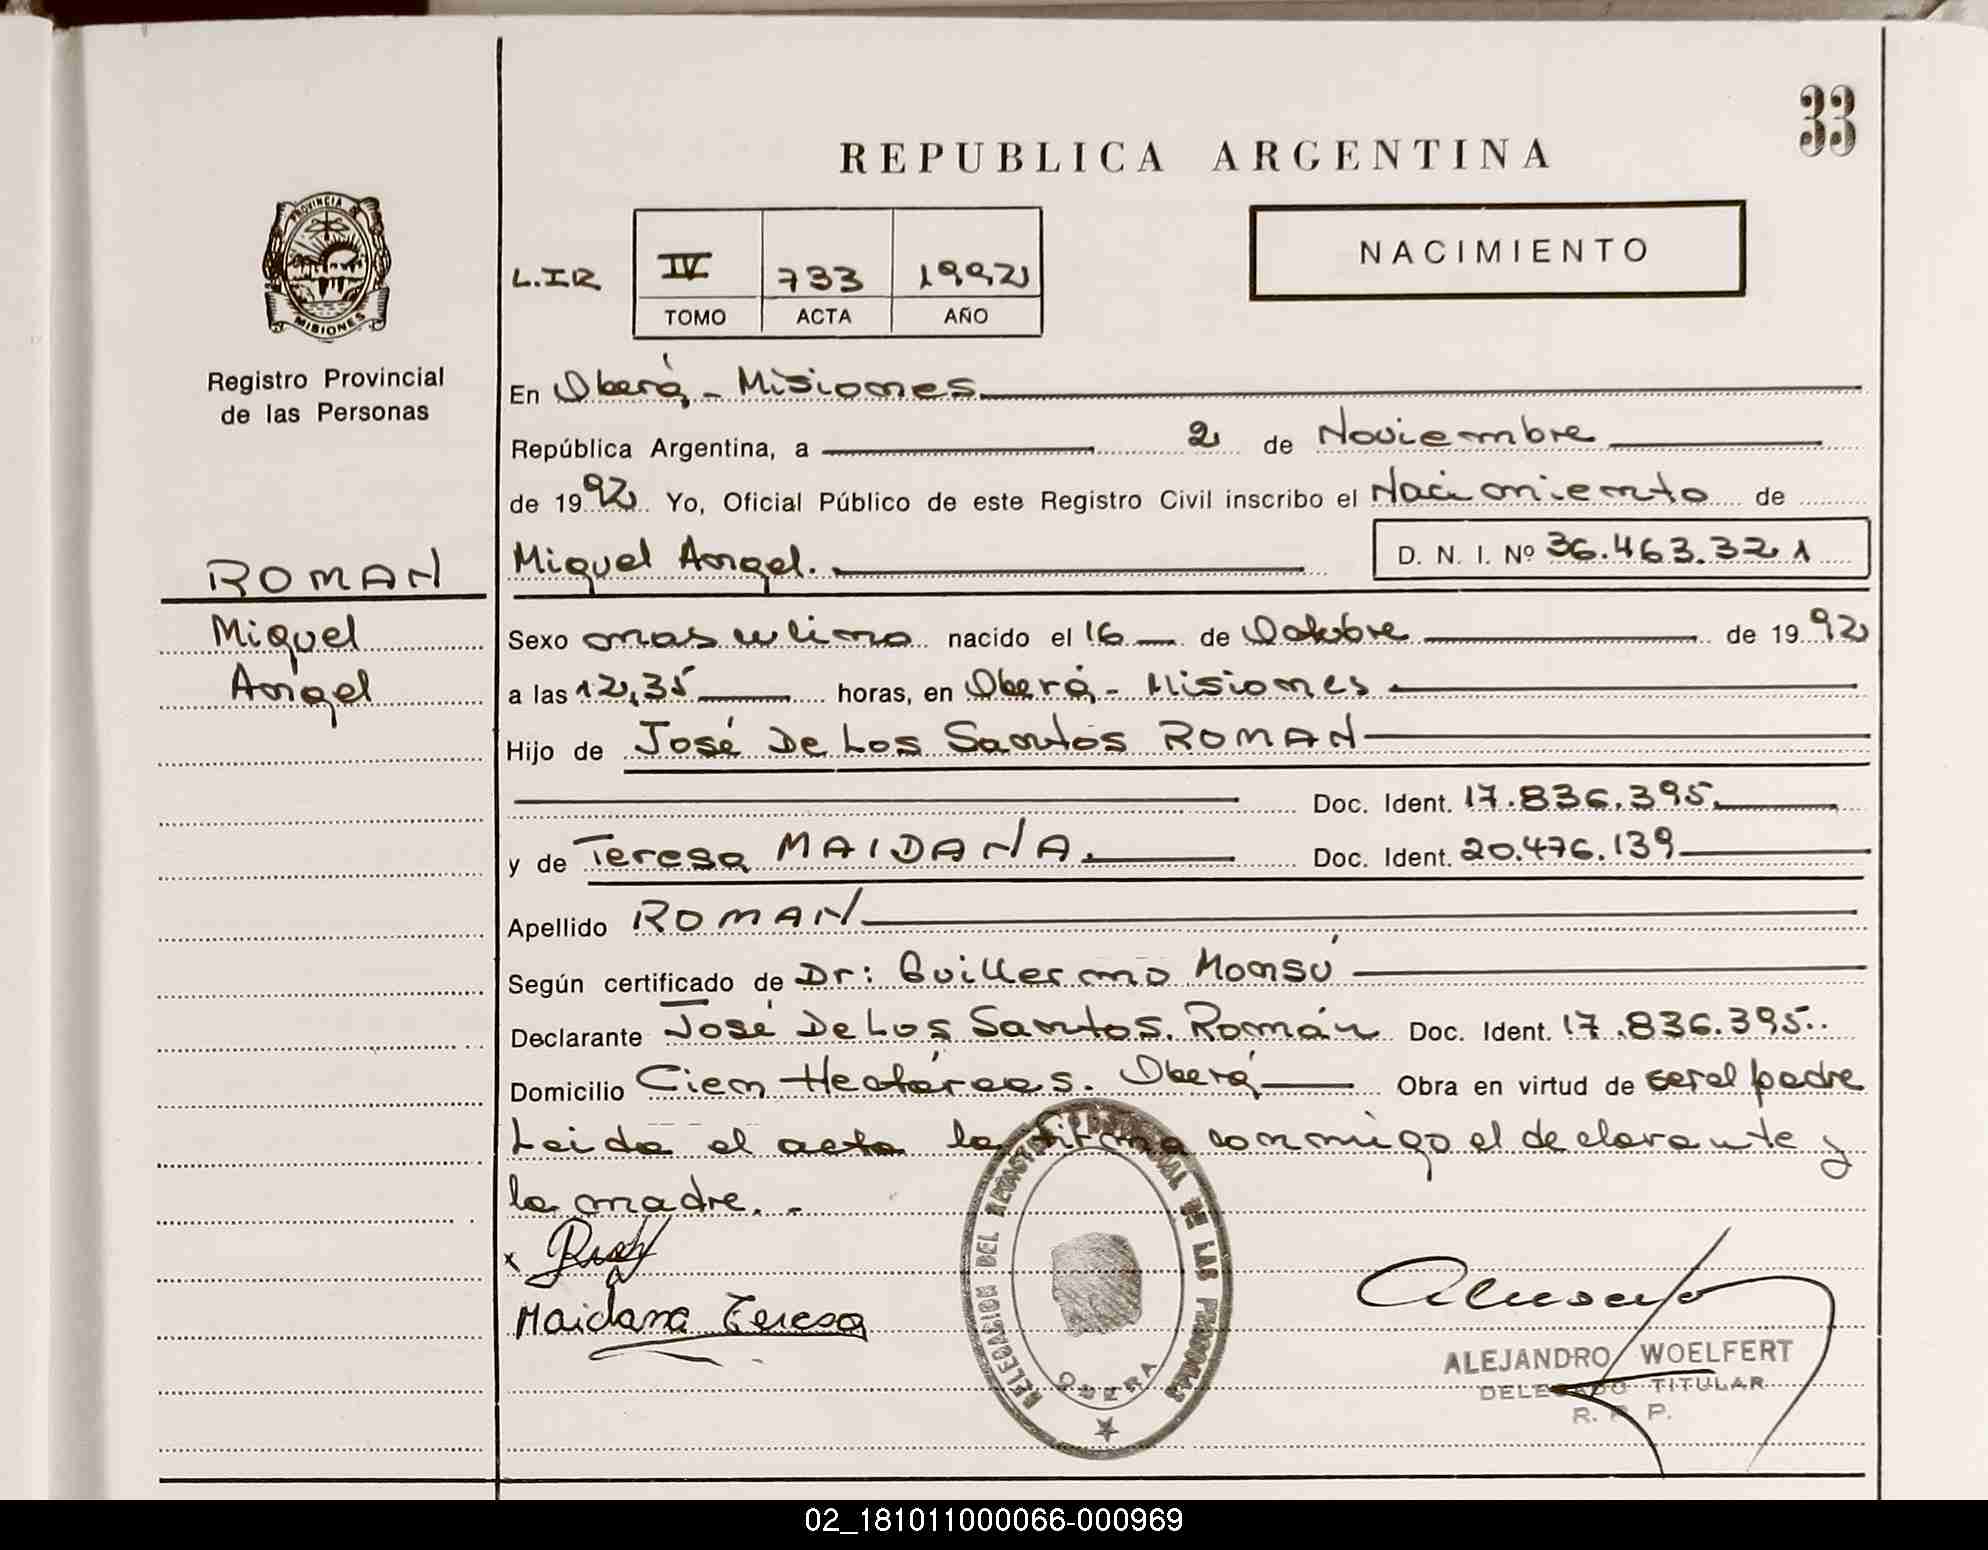 33
REPUBLICA ARGENTINA
PROVINCIA DE
MISIONES
Registro Provincial
de las Personas
L.I.R IV 733 1992
TOMO ACTA AÑO
NACIMIENTO
En Oberá - Misiones
República Argentina, a 2 de Noviembre
de 1992 Yo, Oficial Público de este Registro Civil inscribo el Nacimiento de
ROMAN
Miguel Angel
Miguel Angel. D. N. I. Nº 36.463.321
Sexo masculino nacido el 16 de Octubre de 1992
a las 12,35 horas, en Oberá - Misiones
Hijo de José De Los Santos ROMAN
Doc. Ident. 17.836.395
y de Teresa MAIDANA. Doc. Ident. 20.476.139
Apellido ROMAN
Según certificado de Dr: Guillermo Monsú
Declarante José De Los Santos. Román Doc. Ident. 17.836.395..
Domicilio Cien Hectáreas. Oberá Obra en virtud de ser el padre
Leida el acta la firma conmigo el declarante y
la madre. -
x
Maidana Teresa
DELEGACION DEL REGISTRO PROVINCIAL DE LAS PERSONAS
OBERA
ALEJANDRO WOELFERT
DELEGADO TITULAR
R. P. P.
02_181011000066-000969